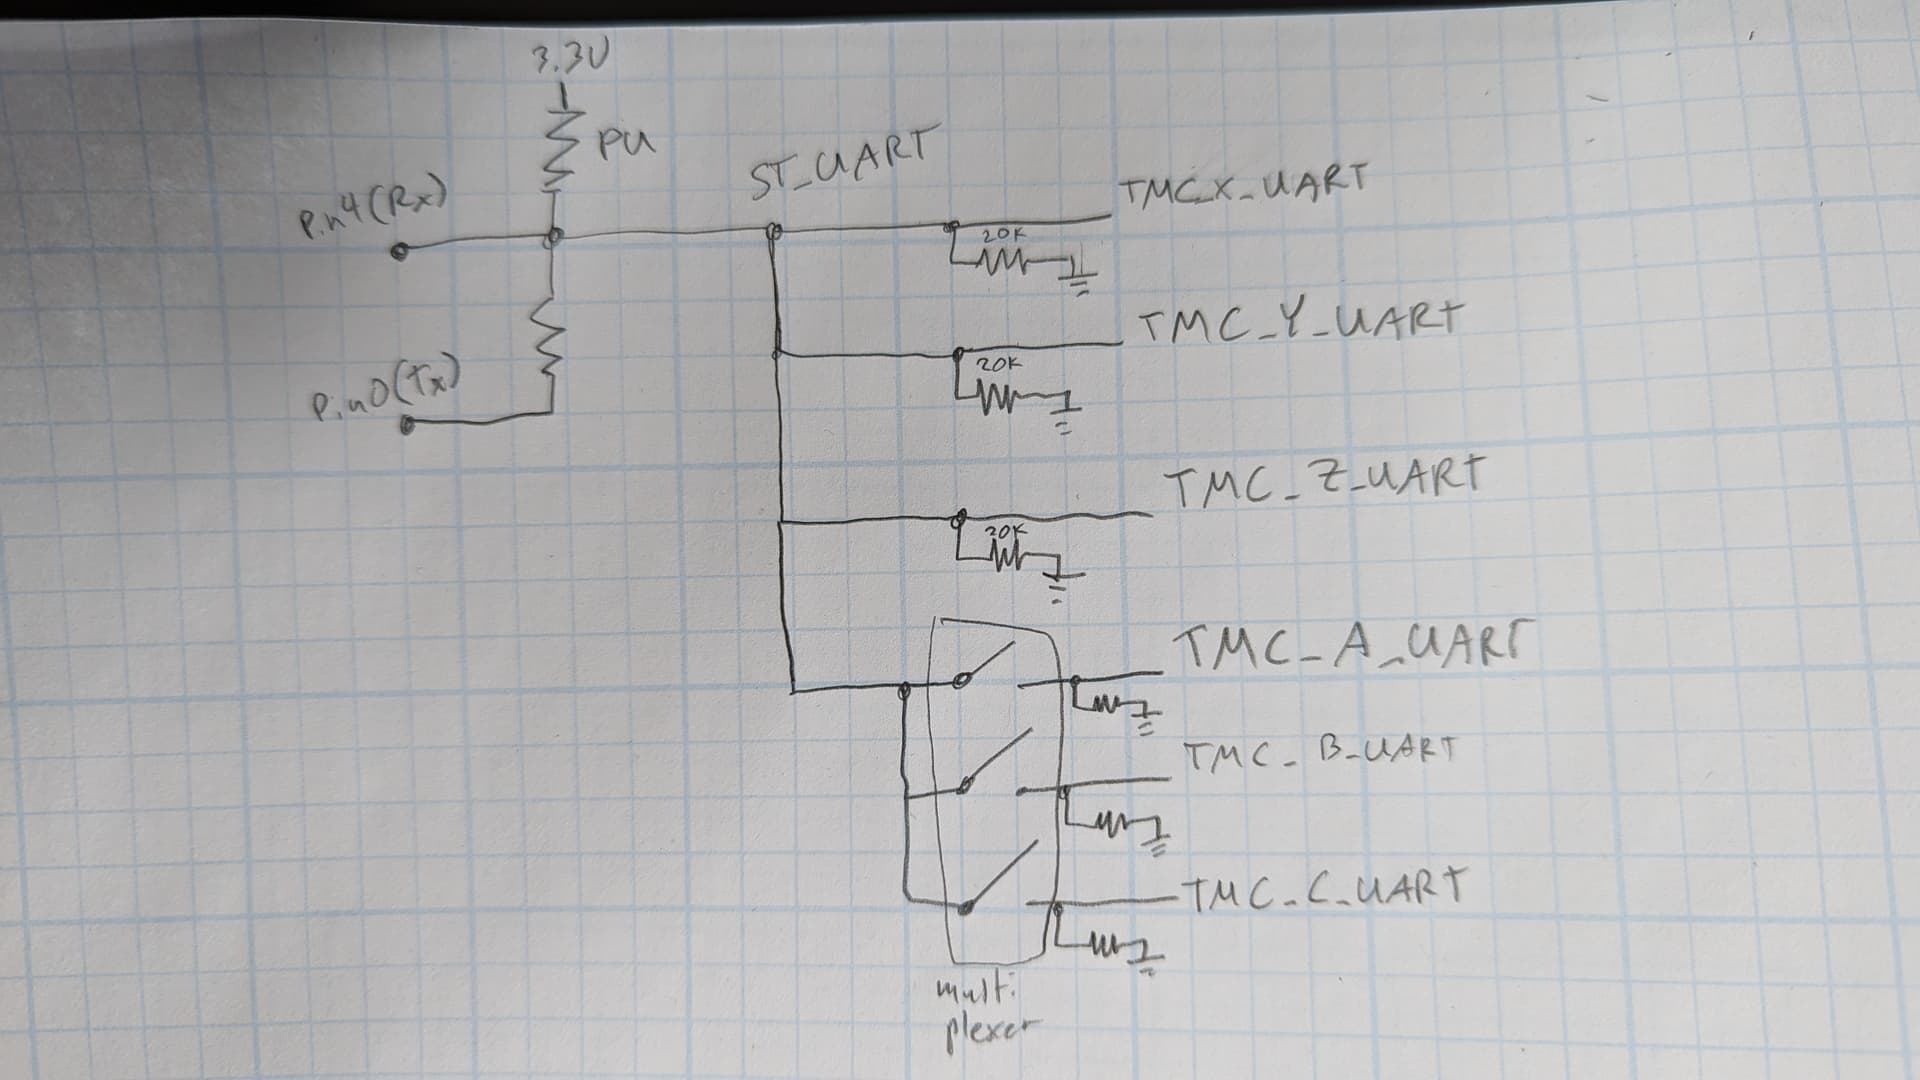 3.3V
PU
Pin4(Rx)
ST_UART
TMC_X_UART
20K
TMC_Y_UART
20K
Pin0(Tx)
TMC_Z_UART
20K
TMC_A_UART
TMC_B_UART
TMC_C_UART
multi
plexer